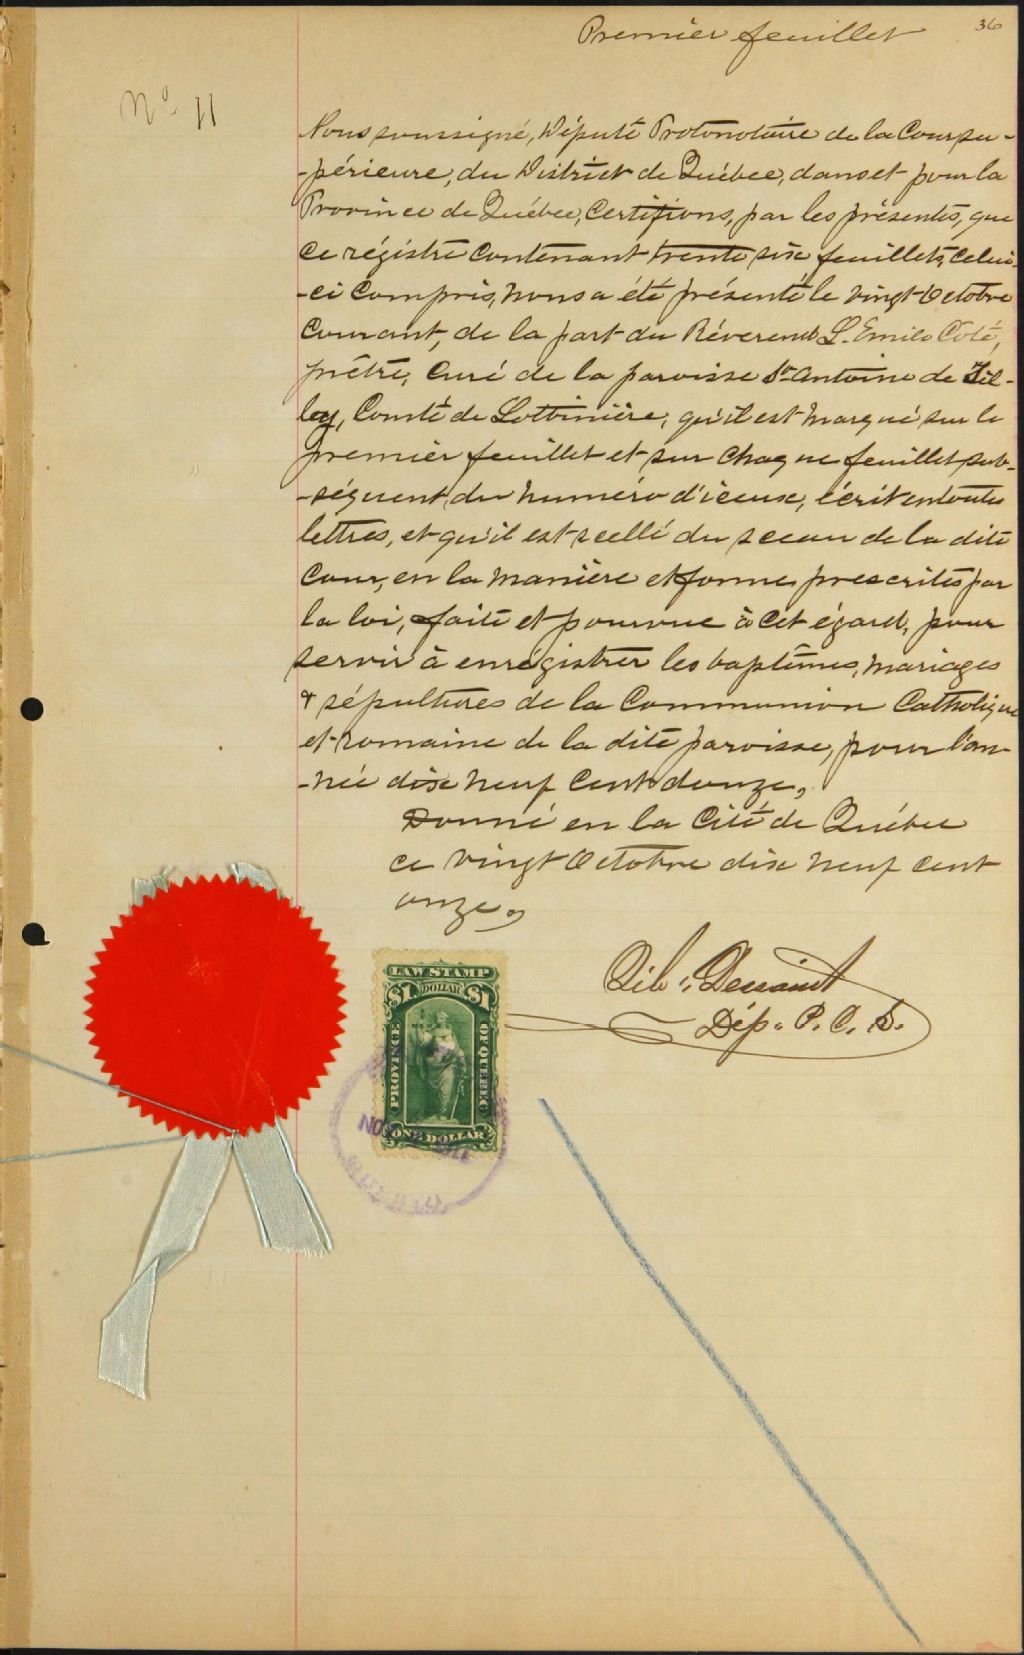 Premier feuillet
36
No. 11
Nous soussigné, Député Protonotaire de la Cour su-
-périeure, du District de Québec, dans et pour la
Province de Québec, Certifions, par les présentes, que
ce régistre contenant trente six feuillets, celui-
-ci compris, nous a été présenté le vingt Octobre
Courant, de la part du Révérend L. Emile Coté,
prêtre, Curé de la paroisse St Antoine de Til-
ley, Comté de Lotbinière, qu'il est marqué sur le
premier feuillet et sur chaque feuillet sub-
-séquent, du numéro d'iceux, écrit en toutes
lettres, et qu'il est scellé du sceau de la dite
Cour, en la manière et forme prescrites par
la loi, faite et pourvue à cet égard, pour
servir à enrégistrer les baptêmes, mariages
& sépultures de la Communion Catholique
et romaine de la dite paroisse, pour l'an-
-née dix neuf cent douze,
Donné en la Cité de Québec
ce vingt Octobre dix neuf cent
onze,
LAW STAMP
$1 DOLLAR $1
PROVINCE OF QUEBEC
ONE DOLLAR
NOV
Dép. P. C. S.